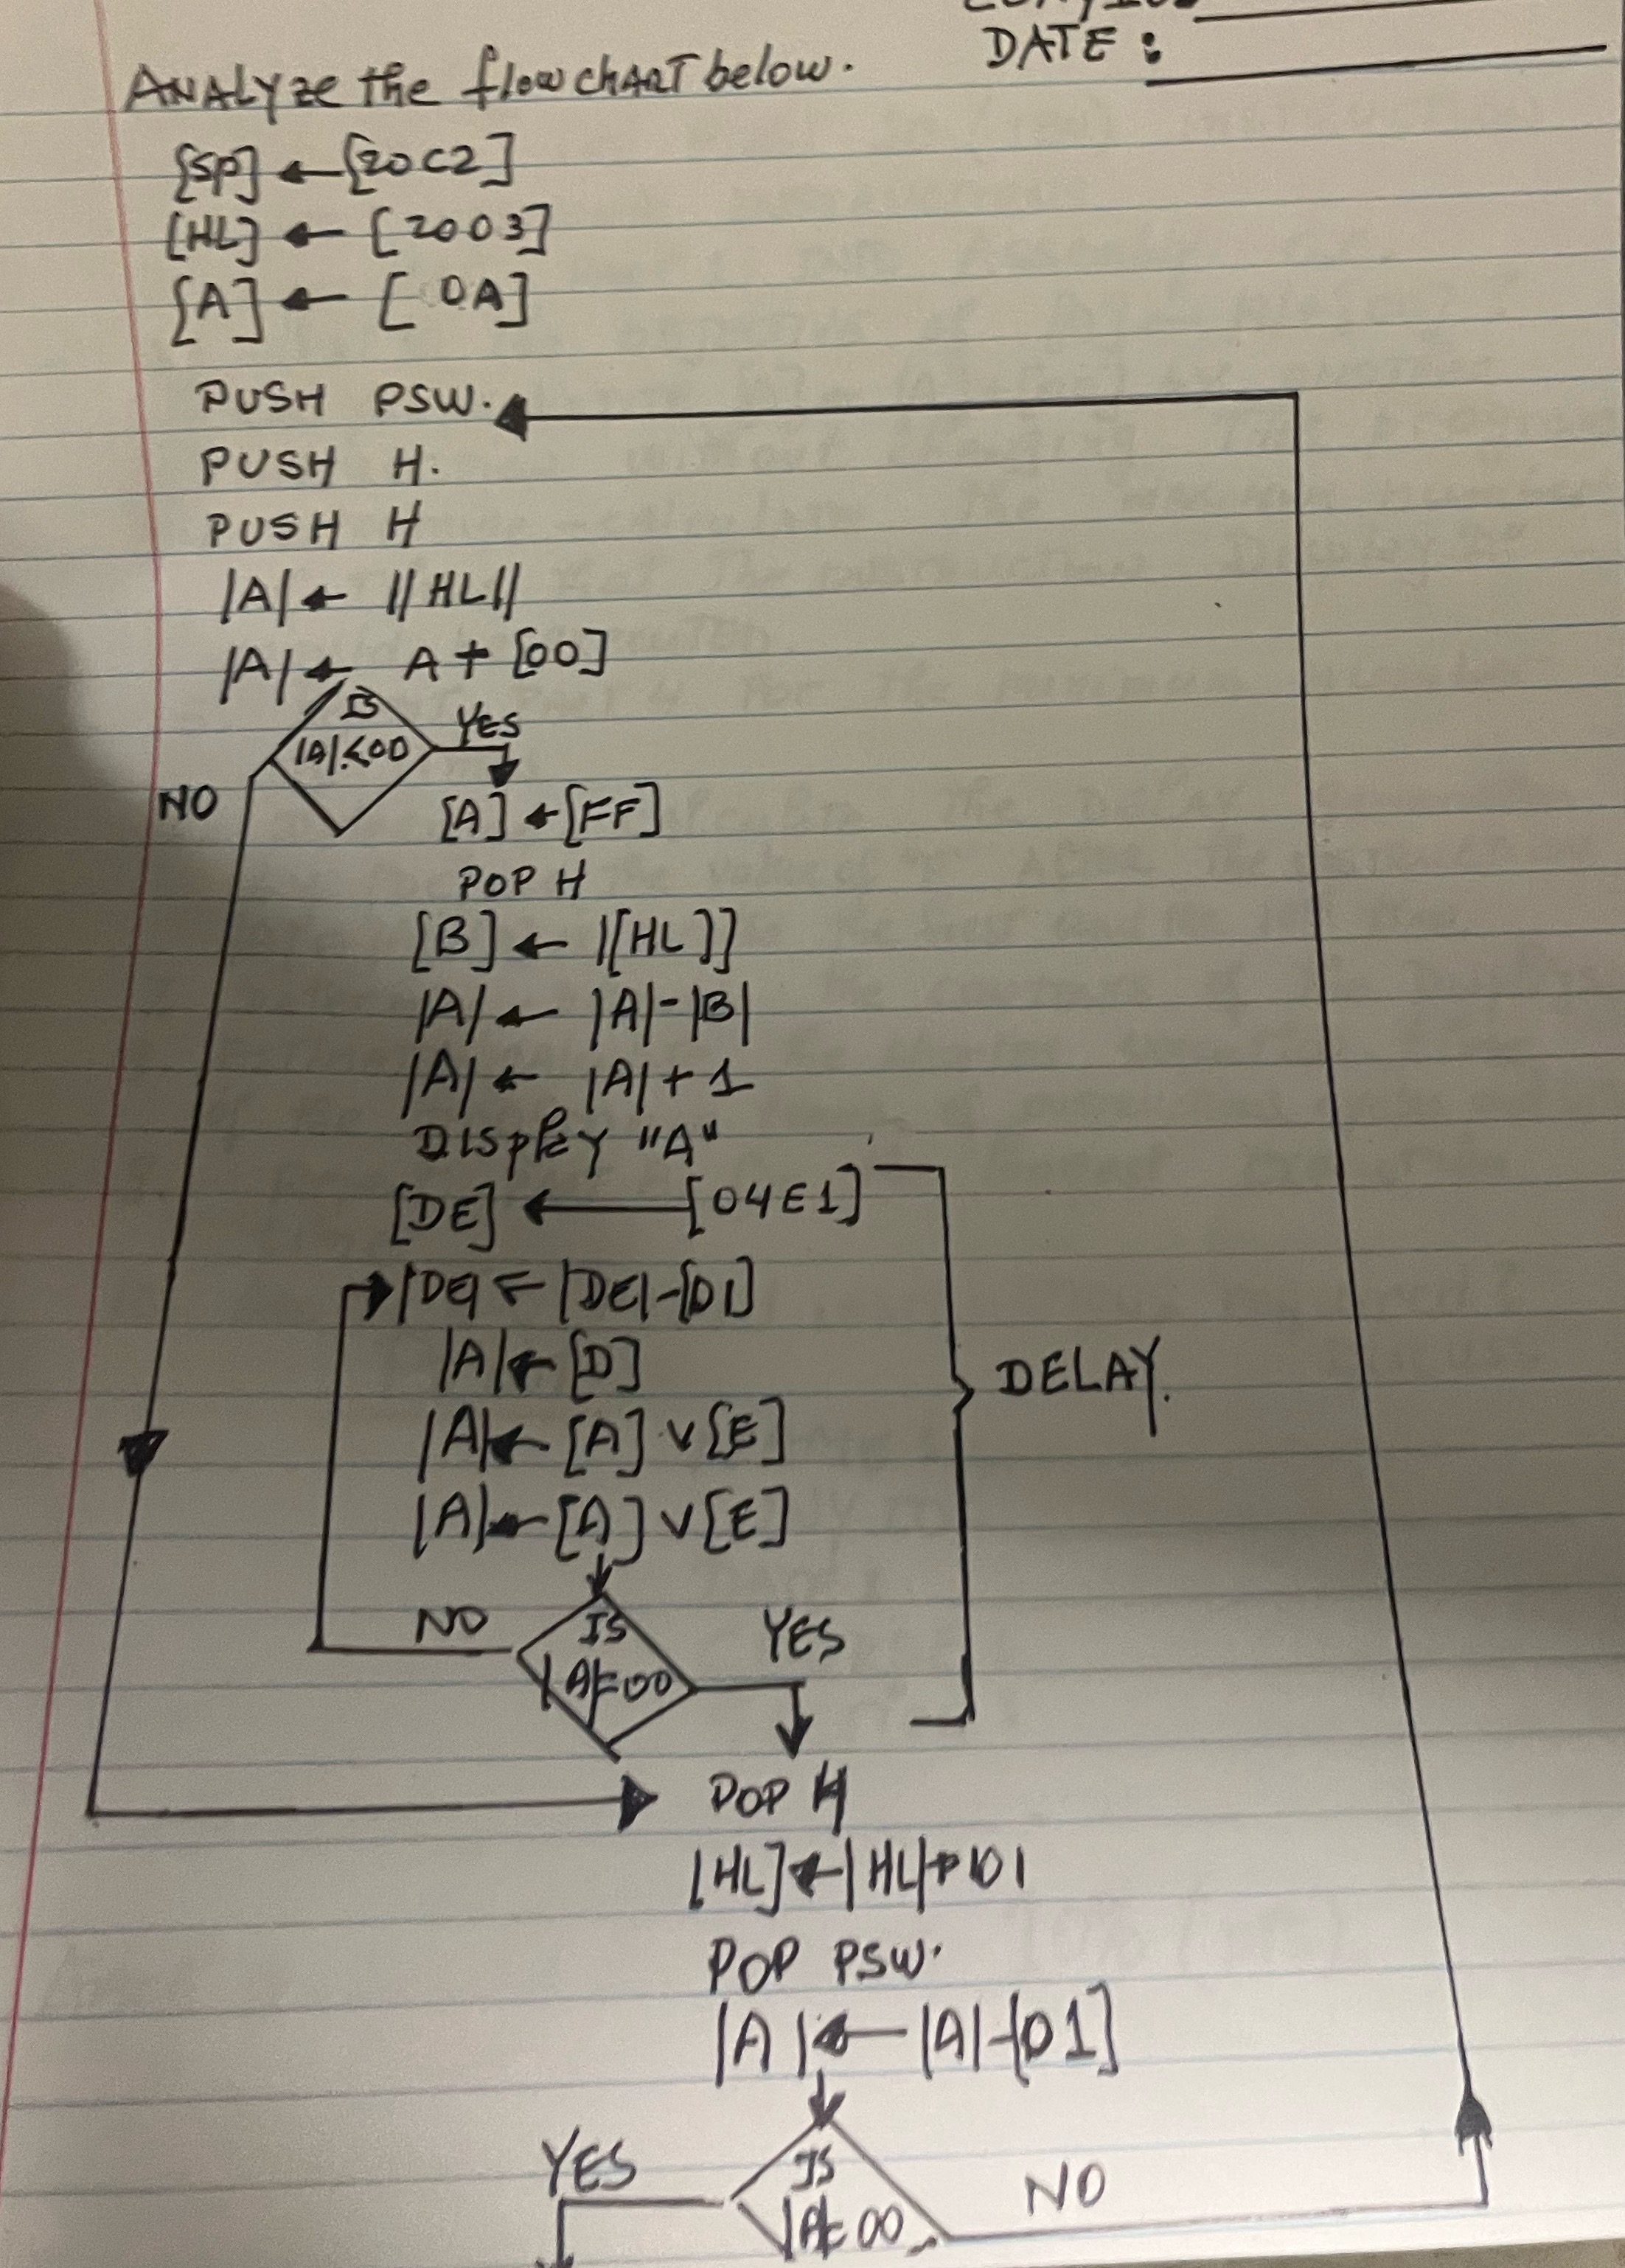 DATE :
ANALYze the flowchART below.
[SP] ← [20C2]
[HL] ← [2003]
[A] ← [ 0A]
PUSH PSW.
PUSH H.
PUSH H
|A| ← ||HL||
|A| ← A + [00]
IS
|A|<00
YES
NO
[A] ← [FF]
POP H
[B] ← |[HL]]
|A| ← |A|-|B|
|A| ← |A|+1
DISplAY "A"
[DE] ← [04E1]
|DE| ← |DE|-[01]
|A| ← [D]
DELAY.
|A| ← [A] v [E]
|A| ← [A] v [E]
NO
IS
|A|=00
YES
POP H
[HL] ← |HL|+01
POP PSW.
|A| ← |A|-[01]
YES
IS
|A|=00
NO